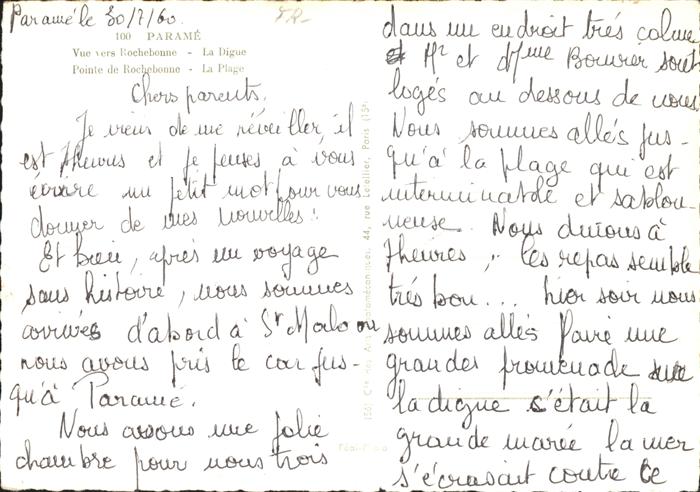 Paramé le 30/7/60.
100 PARAMÉ
Vue vers Rochebonne - La Digue
Pointe de Rochebonne - La Plage
Chers parents.
Je viens de me réveiller, il
est 7 heures et je pense à vous
écrire un petit mot pour vous
donner de mes nouvelles !
Et bien, après un voyage
sans histoire, nous sommes
arrivés d'abord à St Malo ou
nous avons pris le car jus-
qu'à Paramé.
Nous avons une jolie
chambre pour nous trois
dans un endroit très calme
Mr et Mme Bouvier sont
logés au dessous de nous
Nous sommes allés jus-
qu'à la plage qui est
interminable et sablon-
neuse. Nous dinons à
7 heures, les repas semble
très bon... hier soir nous
sommes allés faire une
grandes promenade sur
la digue c'était la
grande marée la mer
s'écrasait contre le
44, rue Letellier, Paris (15e)